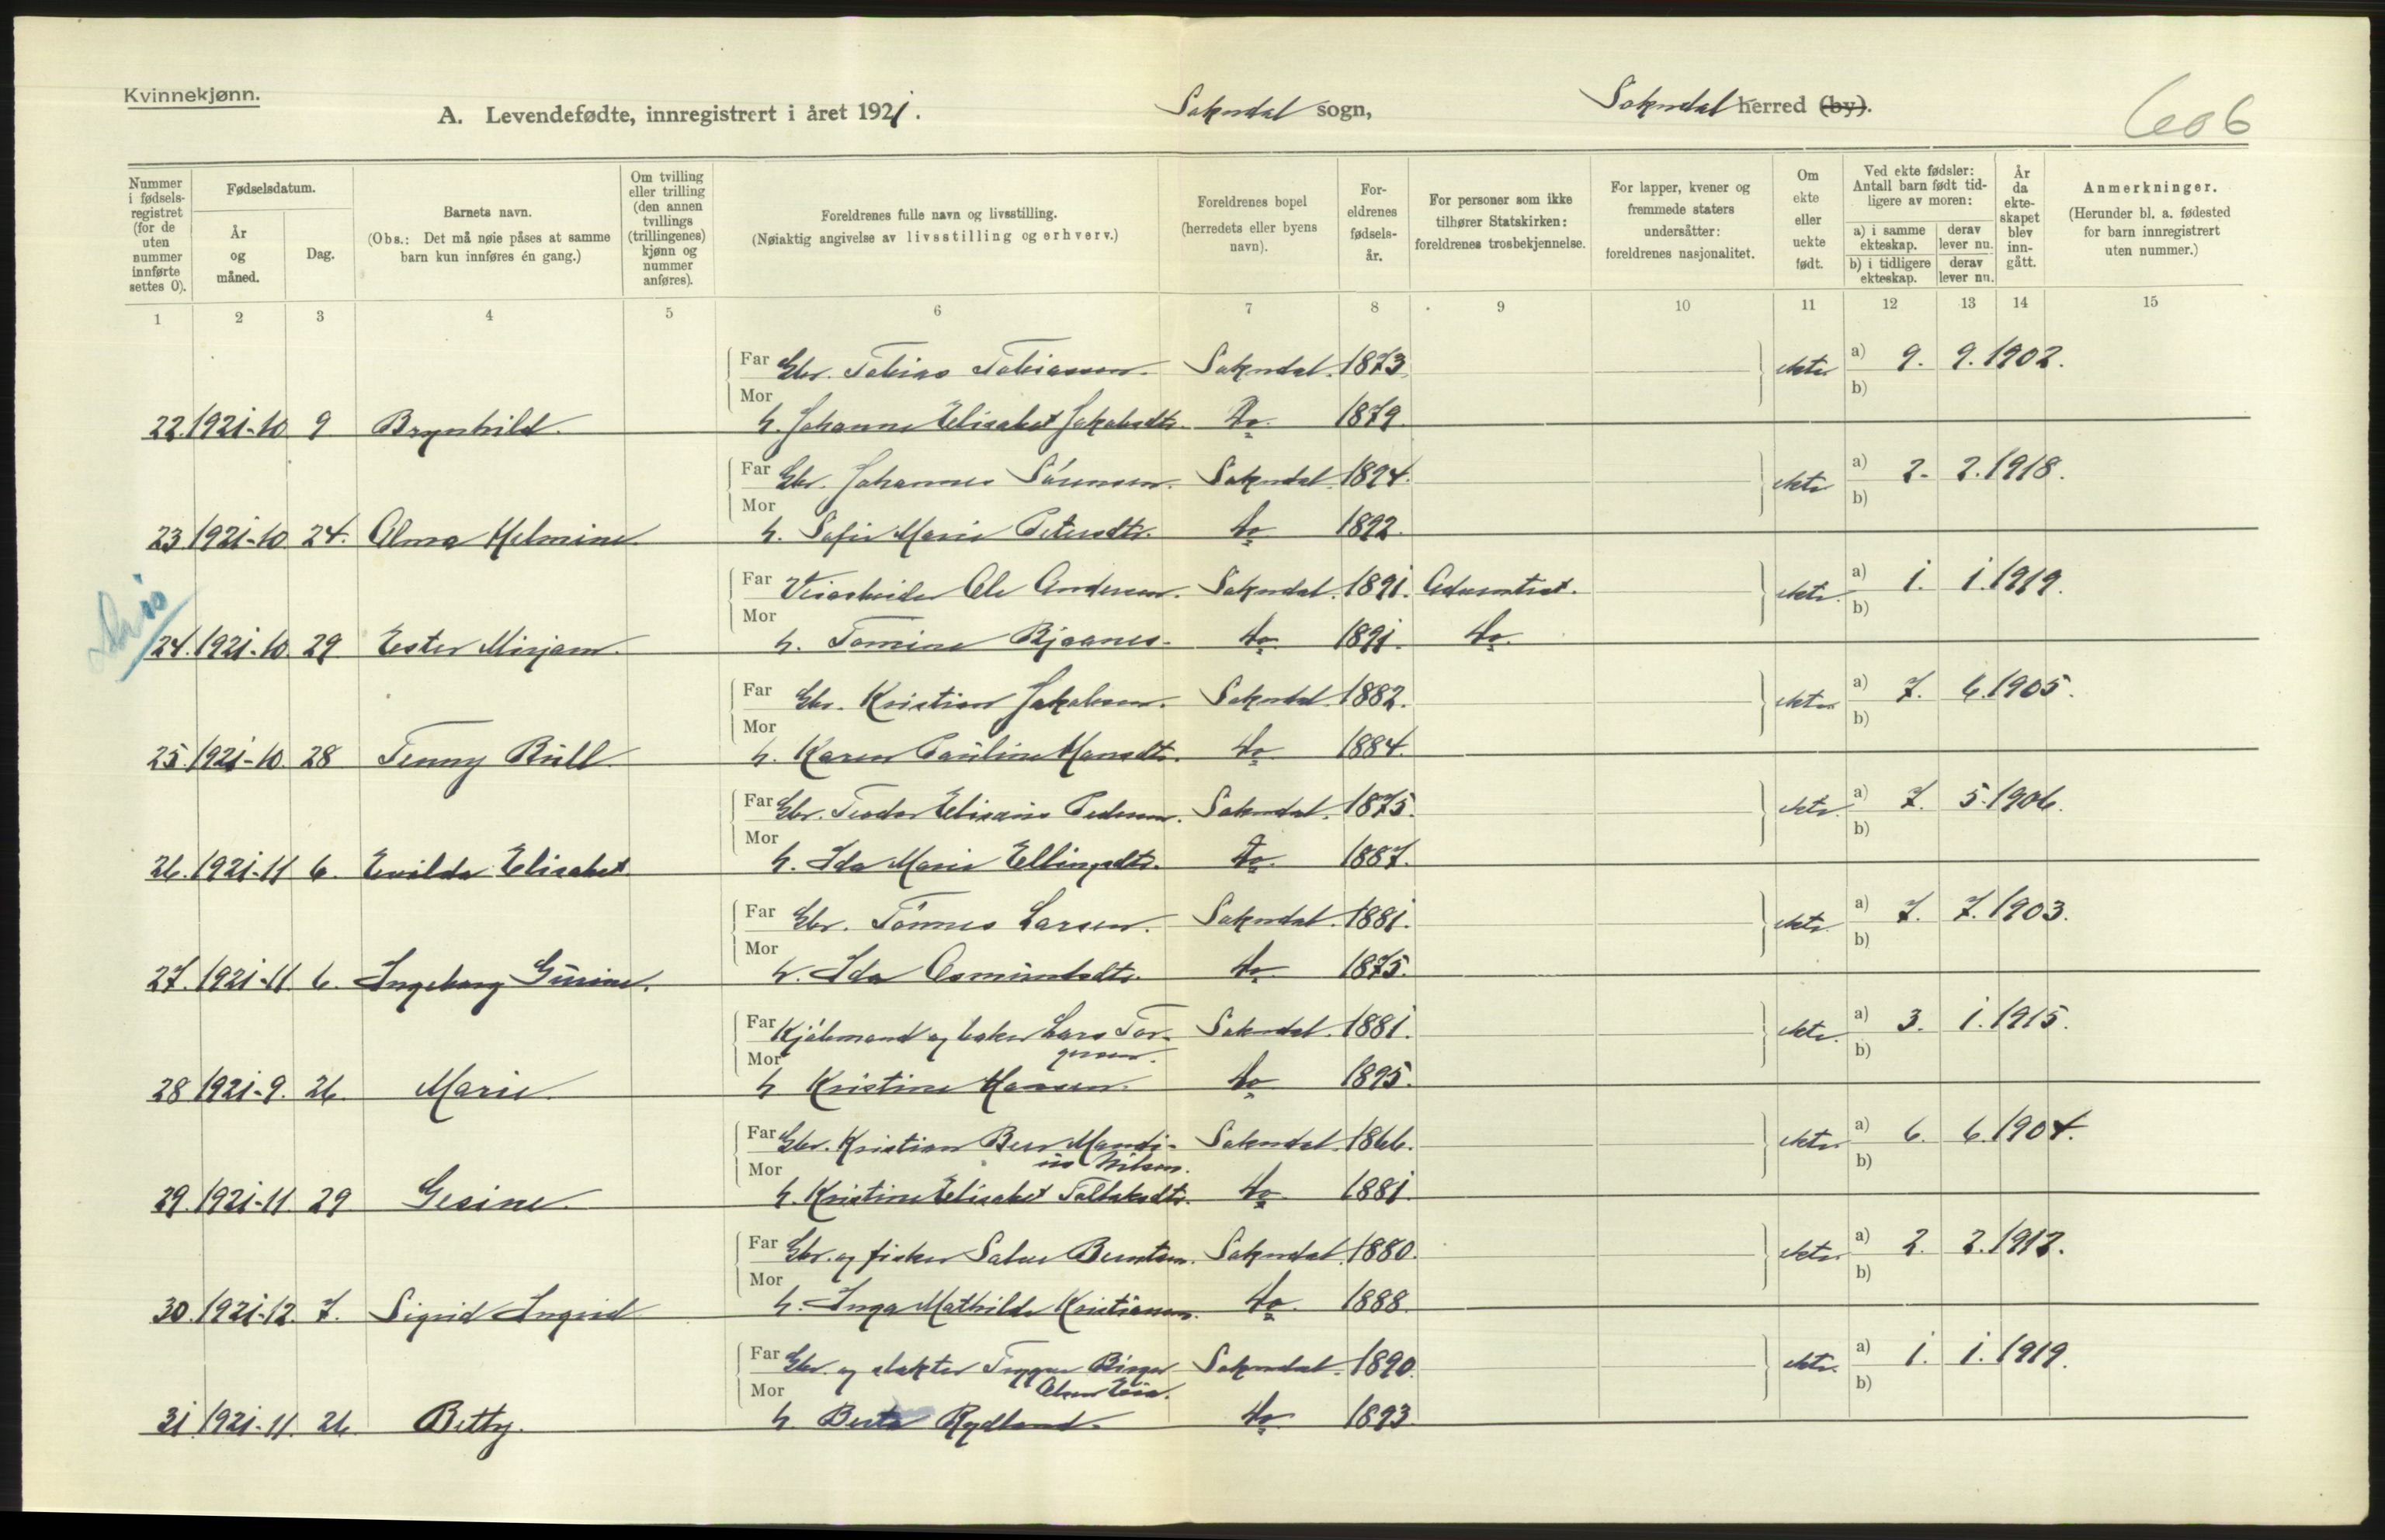 Kvinnekjønn.
A. Levendefødte, innregistrert i året 1921. Sokndal sogn, Sokndal herred (by). 606
Nummer i fødsels-registret (for de uten nummer innførte settes 0).
Fødselsdatum.
År og måned.
Dag.
Barnets navn.
(Obs.: Det må nøie påses at samme barn kun innføres én gang.)
Om tvilling eller trilling (den annen tvillings (trillingenes) kjønn og nummer anføres).
Foreldrenes fulle navn og livsstilling.
(Nøiaktig angivelse av livsstilling og erhverv.)
Foreldrenes bopel (herredets eller byens navn).
For-eldrenes fødsels-år.
For personer som ikke tilhører Statskirken: foreldrenes trosbekjennelse.
For lapper, kvener og fremmede staters undersåtter: foreldrenes nasjonalitet.
Om ekte eller uekte født.
Ved ekte fødsler: Antall barn født tid-ligere av moren:
a) i samme ekteskap. derav lever nu.
b) i tidligere ekteskap. derav lever nu.
År da ekte-skapet blev inn-gått.
Anmerkninger.
(Herunder bl. a. fødested for barn innregistrert uten nummer.)
1 2 3 4 5 6 7 8 9 10 11 12 13 14 15
Far Gbr. Tobias Tobiassen. Sokndal. 1873 ekte a) 9. 9. 1902.
Mor b)
22. 1921-10 9 Brynhild. h. Johanne Elisabet Jakobsdtr. do. 1879.
Far Gbr. Johannes Sörensen. Sokndal. 1894. ekte a) 2. 2. 1918.
Mor b)
23 1921-10. 24. Alma Helmine. h. Sofie Marie Petersdtr. do 1892.
Far Veiarbeider Ole Andersen. Sokndal. 1891. Adventist. ekte. a) 1. 1. 1919.
Mor b)
24. 1921-10. 29 Ester Mirjam. h. Tomine Bjaanes. do. 1891. do.
Far Gbr. Kristian Jakobsen. Sokndal. 1882. ekte a) 7. 6. 1905.
Mor b)
25. 1921-10. 28 Tenny Bull. h. Karen Pauline Hansdtr. do. 1884.
Far Gbr. Teodor Elisæus Pedersen. Sokndal. 1875. ekte. a) 7. 5. 1906.
Mor b)
26. 1921-11 6. Evilda Elisabet h. Ida Marie Ellingsdtr. do. 1887.
Far Gbr. Tönnes Larsen. Sokndal. 1881. ekte. a) 7. 7. 1903.
Mor b)
27. 1921-11. 6. Ingeborg Gurine. h. Ida Osmundsdtr. do. 1875.
Far Kjöbmand og baker Lars Tor- Sokndal. 1881. ekte. a) 3. 1. 1915.
Mor gersen. b)
28 1921-9. 26. Marie. h Kristine Hansen. do 1895.
Far Gbr. Kristian Beer Mandi- Sokndal. 1866. ekte a) 6. 6. 1904.
Mor us Nilsen. b)
29. 1921-11. 29 Gesine. h. Kristine Elisabet Tollaksdtr. do. 1881.
Far Gbr. og fisker Salve Berntsen. Sokndal. 1880. ekte. a) 2. 2. 1912.
Mor b)
30. 1921-12. 7. Sigrid Ingrid h. Inga Mathilde Kristiansen. do. 1888.
Far Gbr. og slakter Trygve Birger Sokndal. 1890. ekte. a) 1. 1. 1919.
Mor Olsen Eia. b)
31 1921-11. 26. Betty. h. Berta Rydland. do. 1893.